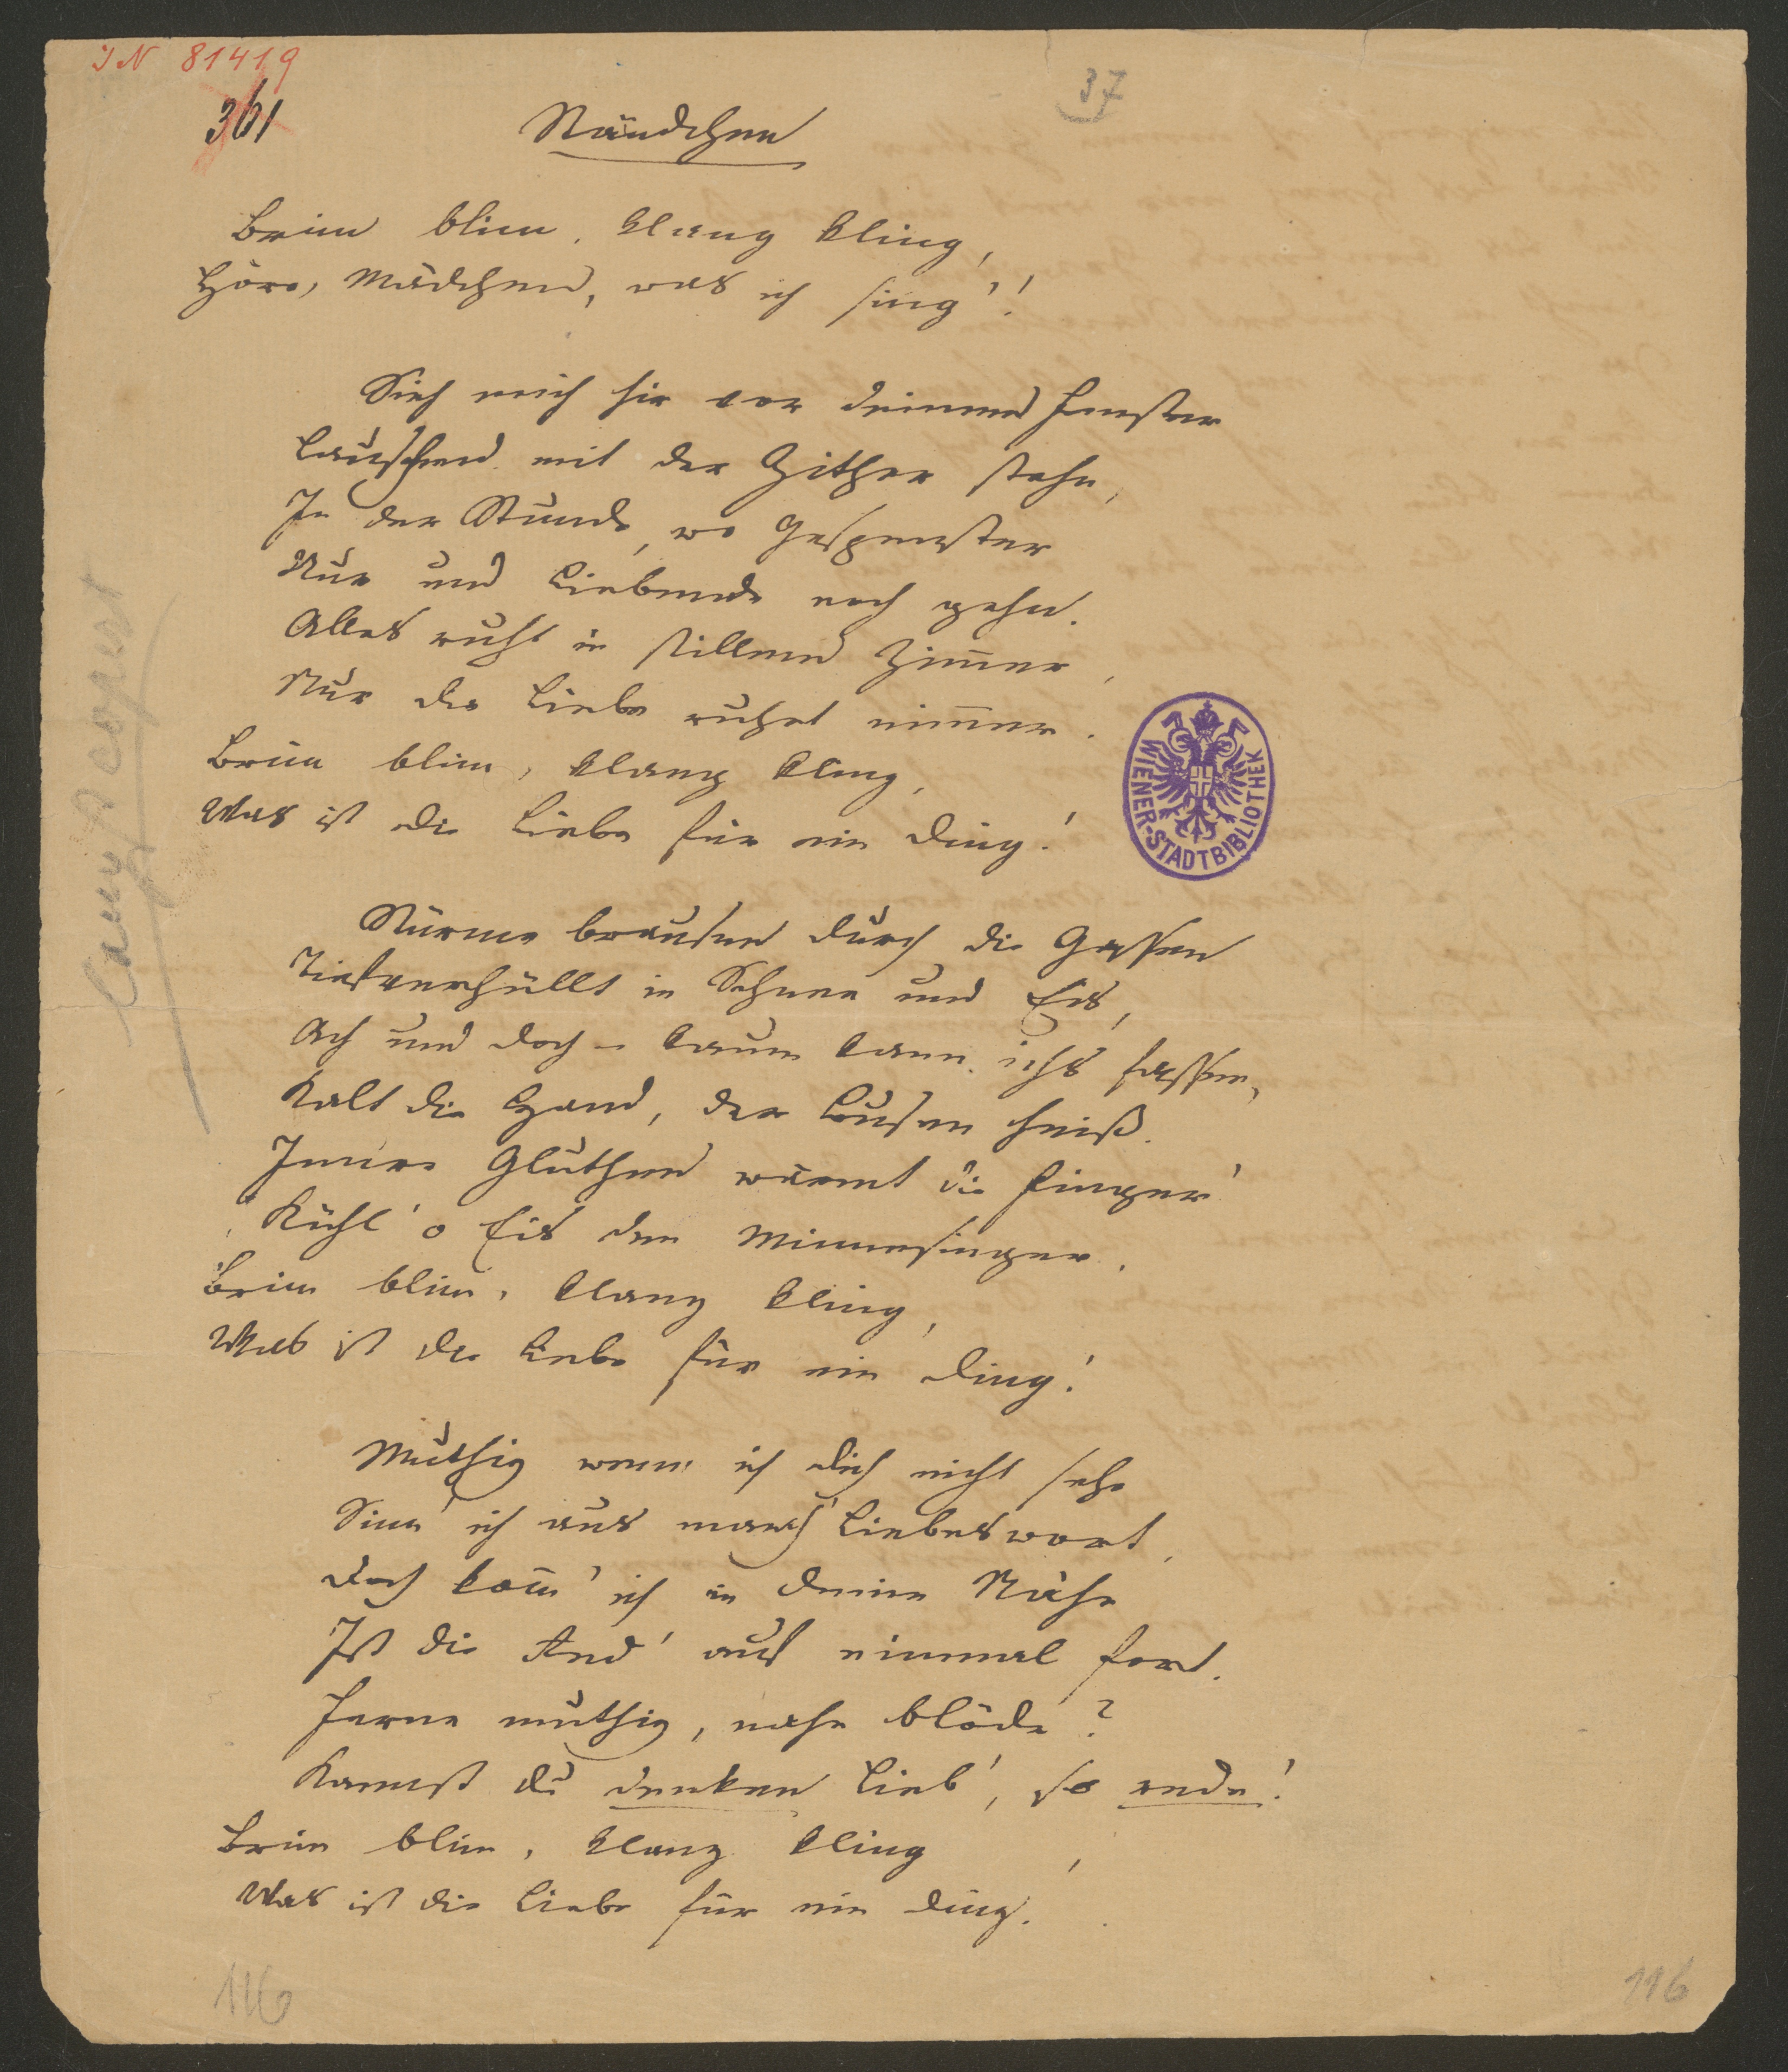 IN 81419
361
37
Ständchen
Brim blim, klang kling,
Höre, Mädchen, was ich sing'!
Sieh mich hie vor deinem Fenster
Lauschend mit der Zither stehn,
In der Stunde, wo Gespenster
Nur und Liebende noch gehn.
Alles ruht in stillem Zimmer,
Nur die Liebe ruhet nimmer.
Brim blim, klang kling,
Was ist die Liebe für ein Ding!
WIENER-STADTBIBLIOTHEK
Stürme brausen durch die Gassen
Tiefverhüllt in Schnee und Eis,
Ach und doch – kaum kann ichs fassen,
Kalt die Hand, der Busen heiß.
Innre Gluthen wärmt die Finger
Kühl' o Eis den Minnesinger.
Brim blim, klang kling,
Was ist die Liebe für ein Ding!
Muthig wenn ich dich nicht sehe
Sinn' ich aus manch' Liebeswort,
Doch kom̄' ich in deine Nähe
Ist die Red' auf einmal fort.
Ferne muthig, nahe blöde?
Kannst du denken Lieb', so rede!
Brim blim, klang kling,
Was ist die Liebe für ein Ding!
116
116